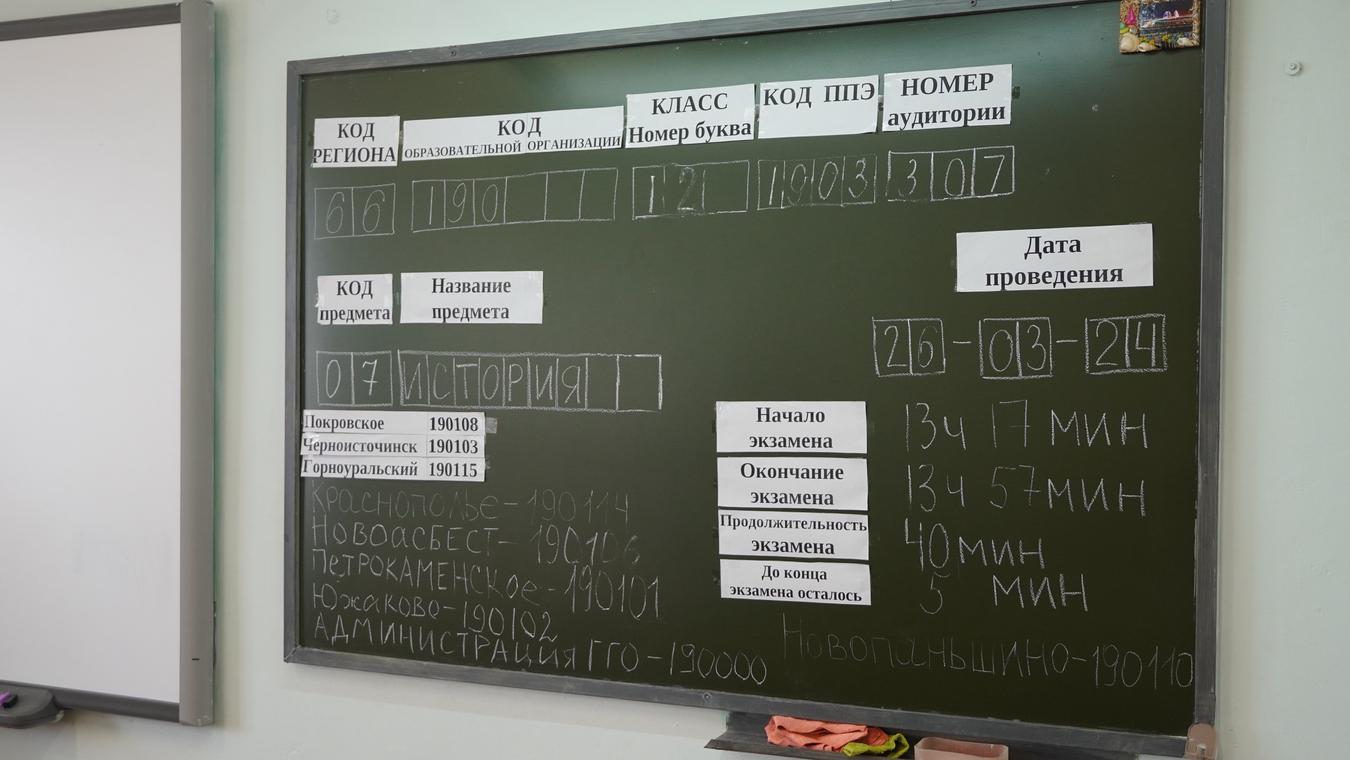 КОД РЕГИОНА
КОД ОБРАЗОВАТЕЛЬНОЙ ОРГАНИЗАЦИИ
КЛАСС Номер буква
КОД ППЭ
НОМЕР аудитории
66 190 12 1903 307
Дата
проведения
26-03-24
КОД предмета
Название предмета
07 ИСТОРИЯ
Покровское 190108
Черноисточинск 190103
Горноуральский 190115
Краснополье-190114
Новоасбест-190106
Петрокаменское-190101
Южаково-190102
Администрация ГГО-190000
Начало экзамена 13ч 17 мин
Окончание экзамена 13ч 57 мин
Продолжительность экзамена 40 мин
До конца экзамена осталось 5 мин
Новопаньшино-190110